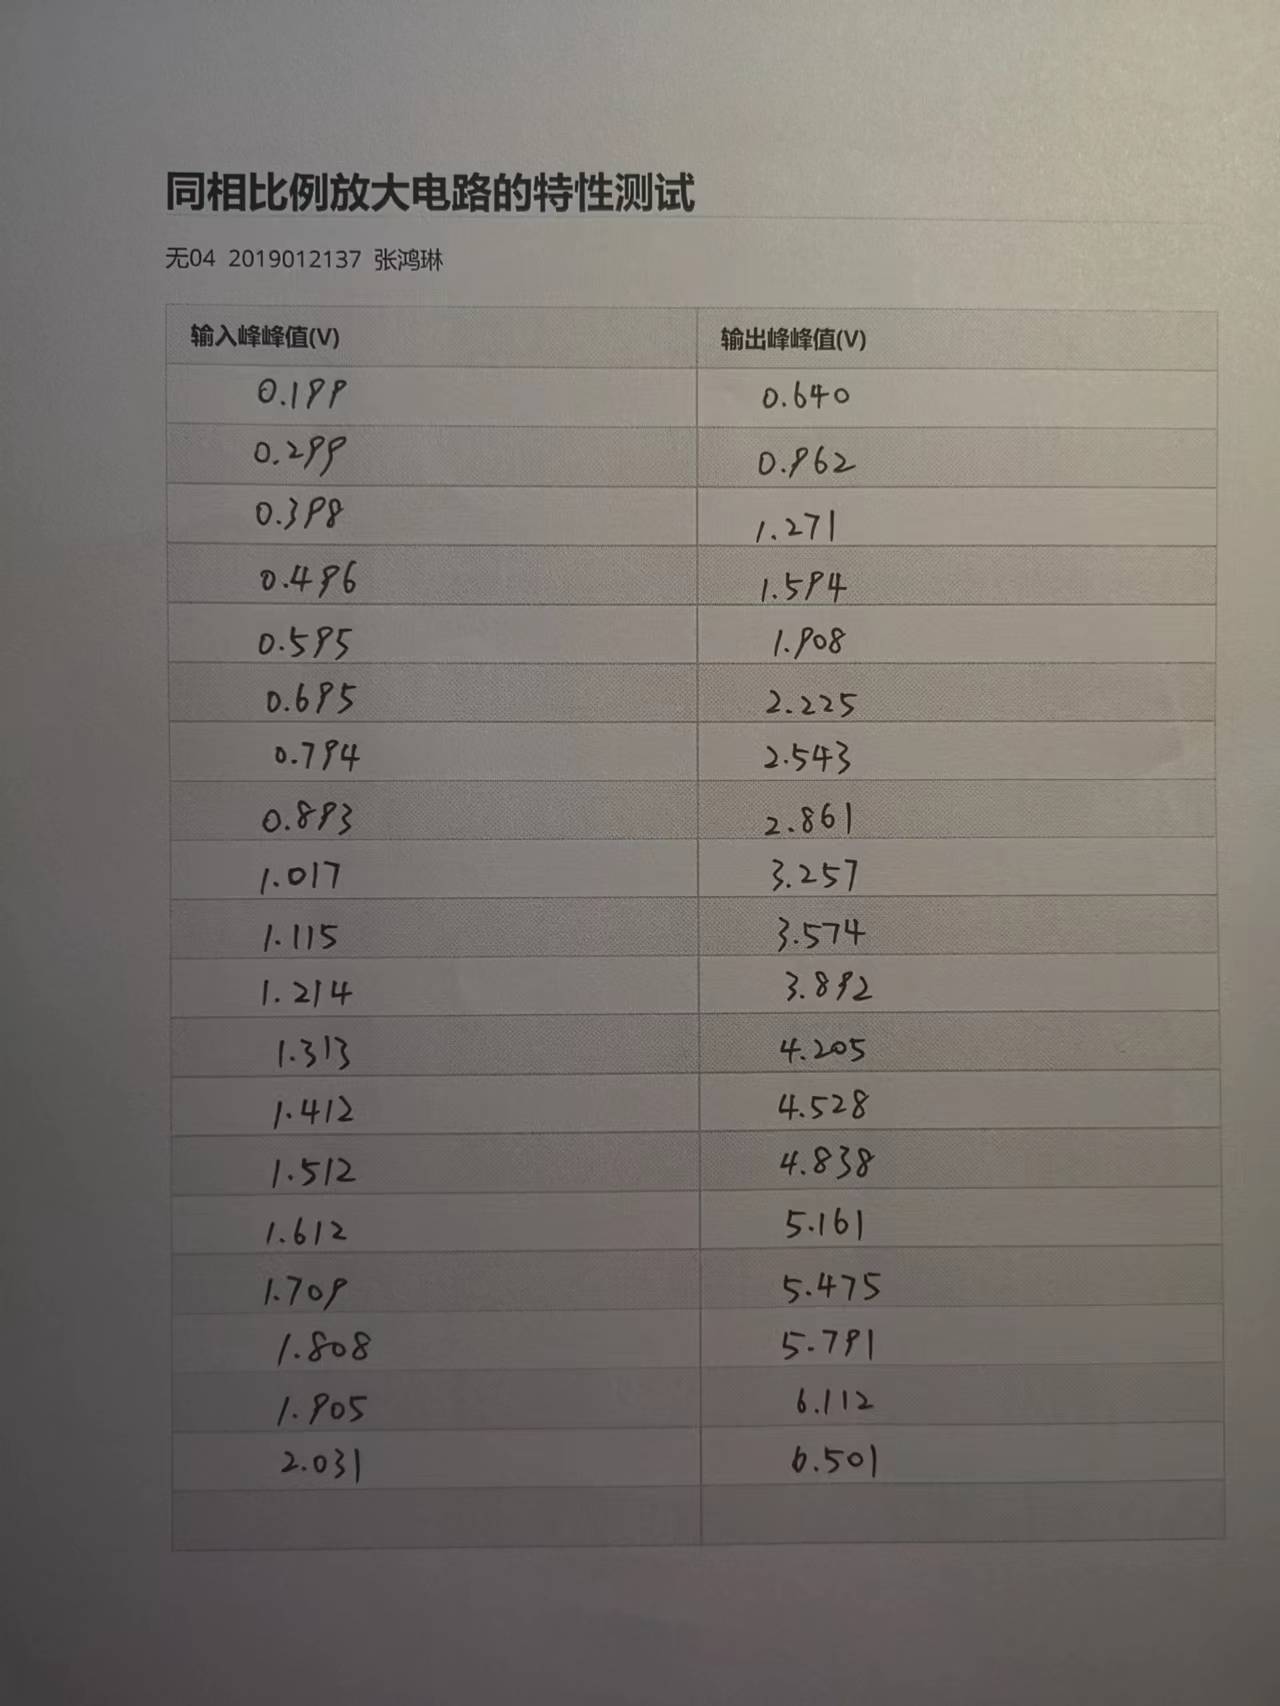 同相比例放大电路的特性测试
无04 2019012137 张鸿琳
输入峰峰值(V) 输出峰峰值(V)
0.199 0.640
0.299 0.962
0.398 1.271
0.496 1.594
0.595 1.908
0.695 2.225
0.794 2.543
0.893 2.861
1.017 3.257
1.115 3.574
1.214 3.892
1.313 4.205
1.412 4.528
1.512 4.838
1.612 5.161
1.709 5.475
1.808 5.791
1.905 6.112
2.031 6.501